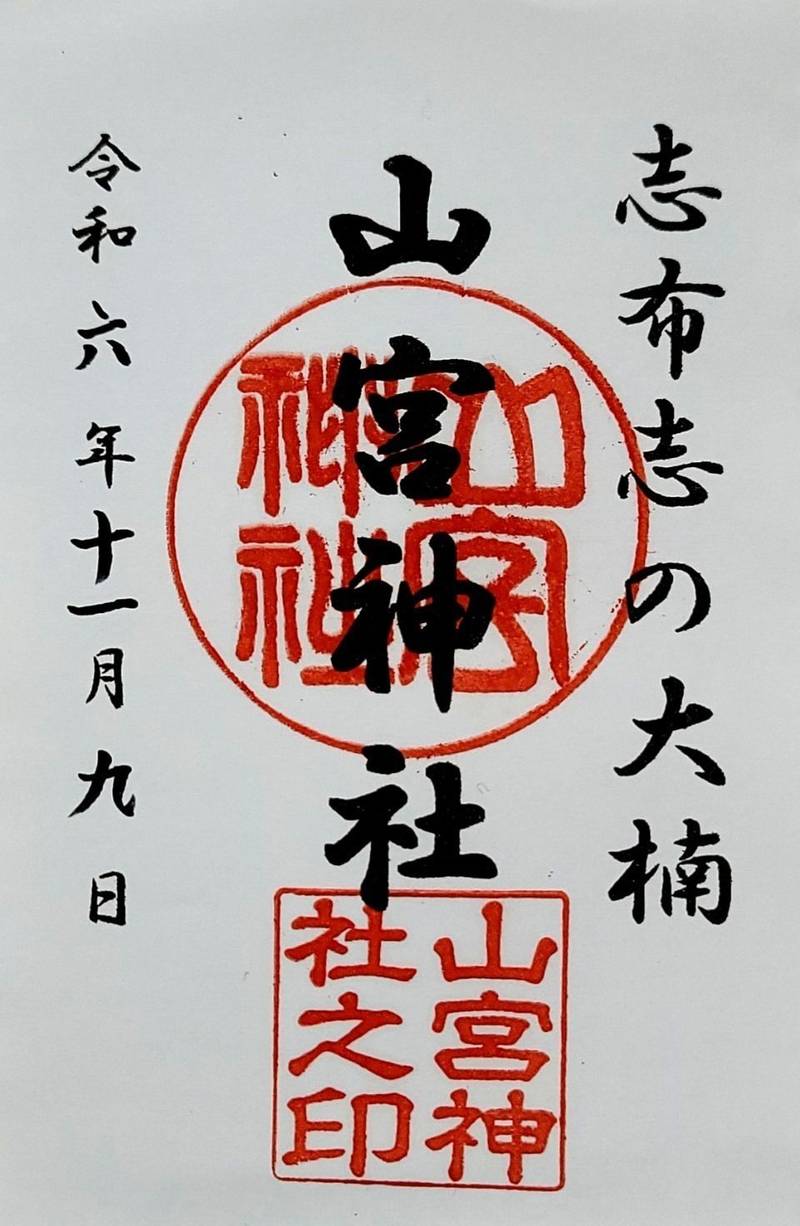 志布志の大楠
山宮神社
令和六年十一月九日
山
神社
山宮神
社之印